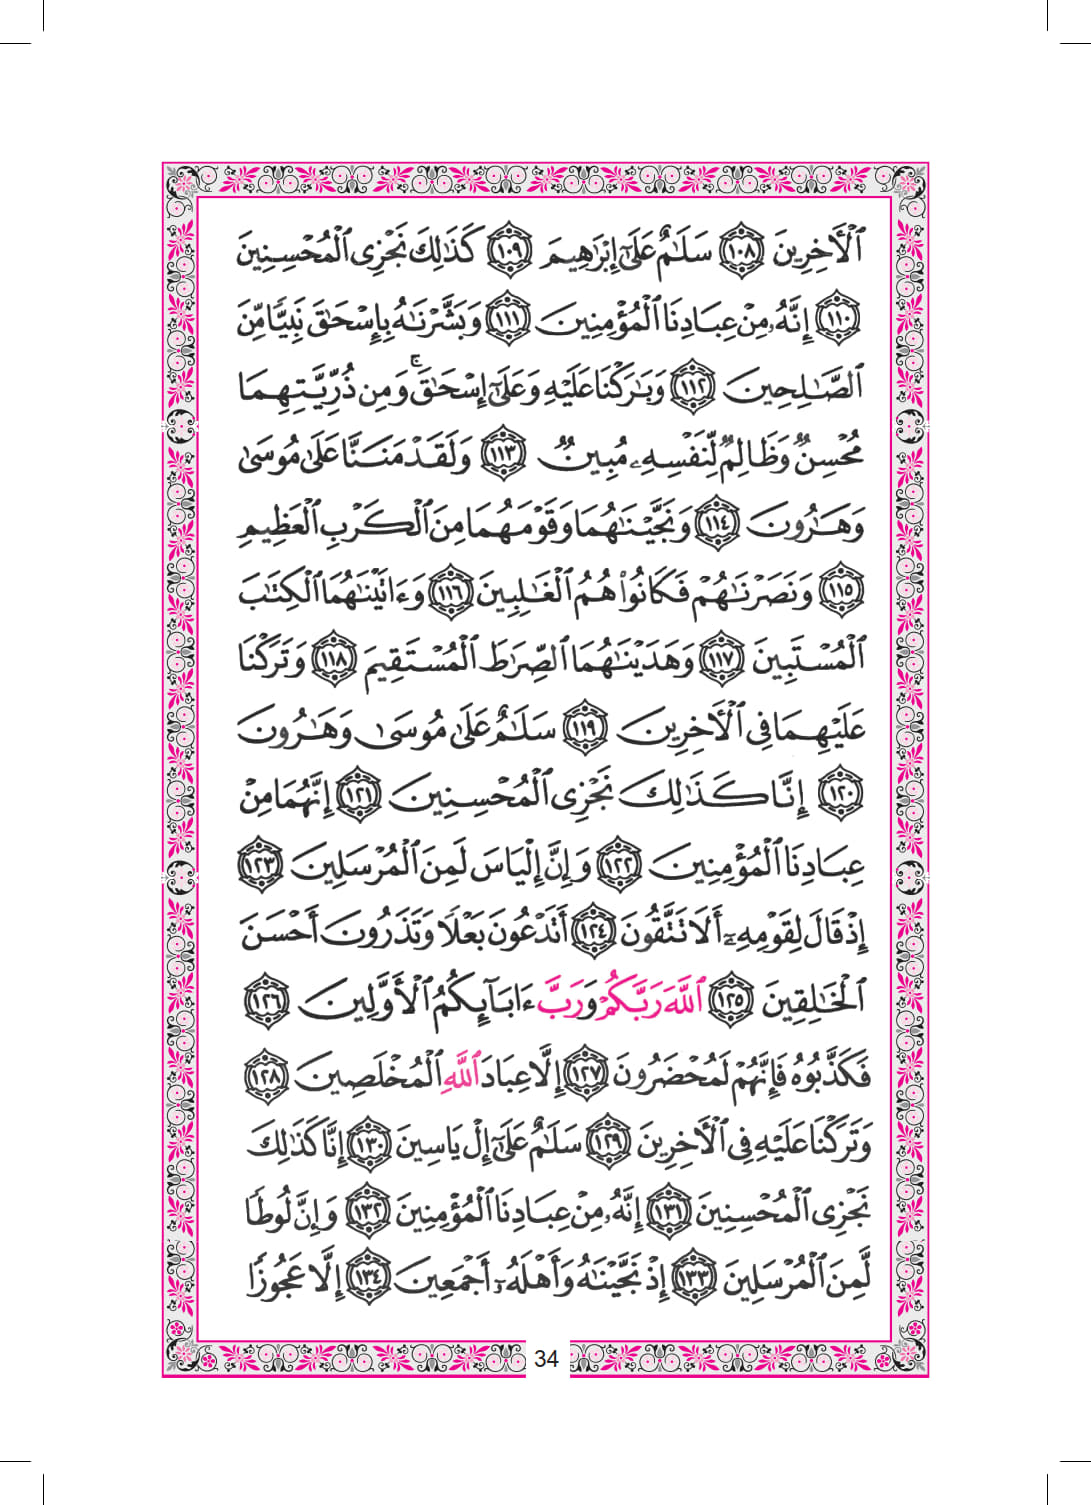 ٱلْأَخِرِينَ ١٠٨ سَلَٰمٌ عَلَىٰٓ إِبْرَٰهِيمَ ١٠٩ كَذَٰلِكَ نَجْزِى ٱلْمُحْسِنِينَ
١١٠ إِنَّهُۥ مِنْ عِبَادِنَا ٱلْمُؤْمِنِينَ ١١١ وَبَشَّرْنَٰهُ بِإِسْحَٰقَ نَبِيًّا مِّنَ
ٱلصَّٰلِحِينَ ١١٢ وَبَٰرَكْنَا عَلَيْهِ وَعَلَىٰٓ إِسْحَٰقَ ۚ وَمِن ذُرِّيَّتِهِمَا
مُحْسِنٌ وَظَالِمٌ لِّنَفْسِهِۦ مُبِينٌ ١١٣ وَلَقَدْ مَنَنَّا عَلَىٰ مُوسَىٰ
وَهَٰرُونَ ١١٤ وَنَجَّيْنَٰهُمَا وَقَوْمَهُمَا مِنَ ٱلْكَرْبِ ٱلْعَظِيمِ
١١٥ وَنَصَرْنَٰهُمْ فَكَانُوا۟ هُمُ ٱلْغَٰلِبِينَ ١١٦ وَءَاتَيْنَٰهُمَا ٱلْكِتَٰبَ
ٱلْمُسْتَبِينَ ١١٧ وَهَدَيْنَٰهُمَا ٱلصِّرَٰطَ ٱلْمُسْتَقِيمَ ١١٨ وَتَرَكْنَا
عَلَيْهِمَا فِى ٱلْأَخِرِينَ ١١٩ سَلَٰمٌ عَلَىٰ مُوسَىٰ وَهَٰرُونَ
١٢٠ إِنَّا كَذَٰلِكَ نَجْزِى ٱلْمُحْسِنِينَ ١٢١ إِنَّهُمَا مِنْ
عِبَادِنَا ٱلْمُؤْمِنِينَ ١٢٢ وَإِنَّ إِلْيَاسَ لَمِنَ ٱلْمُرْسَلِينَ ١٢٣
إِذْ قَالَ لِقَوْمِهِۦٓ أَلَا تَتَّقُونَ ١٢٤ أَتَدْعُونَ بَعْلًا وَتَذَرُونَ أَحْسَنَ
ٱلْخَٰلِقِينَ ١٢٥ ٱللَّهَ رَبَّكُمْ وَرَبَّ ءَابَآئِكُمُ ٱلْأَوَّلِينَ ١٢٦
فَكَذَّبُوهُ فَإِنَّهُمْ لَمُحْضَرُونَ ١٢٧ إِلَّا عِبَادَ ٱللَّهِ ٱلْمُخْلَصِينَ ١٢٨
وَتَرَكْنَا عَلَيْهِ فِى ٱلْأَخِرِينَ ١٢٩ سَلَٰمٌ عَلَىٰٓ إِلْ يَاسِينَ ١٣٠ إِنَّا كَذَٰلِكَ
نَجْزِى ٱلْمُحْسِنِينَ ١٣١ إِنَّهُۥ مِنْ عِبَادِنَا ٱلْمُؤْمِنِينَ ١٣٢ وَإِنَّ لُوطًا
لَّمِنَ ٱلْمُرْسَلِينَ ١٣٣ إِذْ نَجَّيْنَٰهُ وَأَهْلَهُۥٓ أَجْمَعِينَ ١٣٤ إِلَّا عَجُوزًا
34